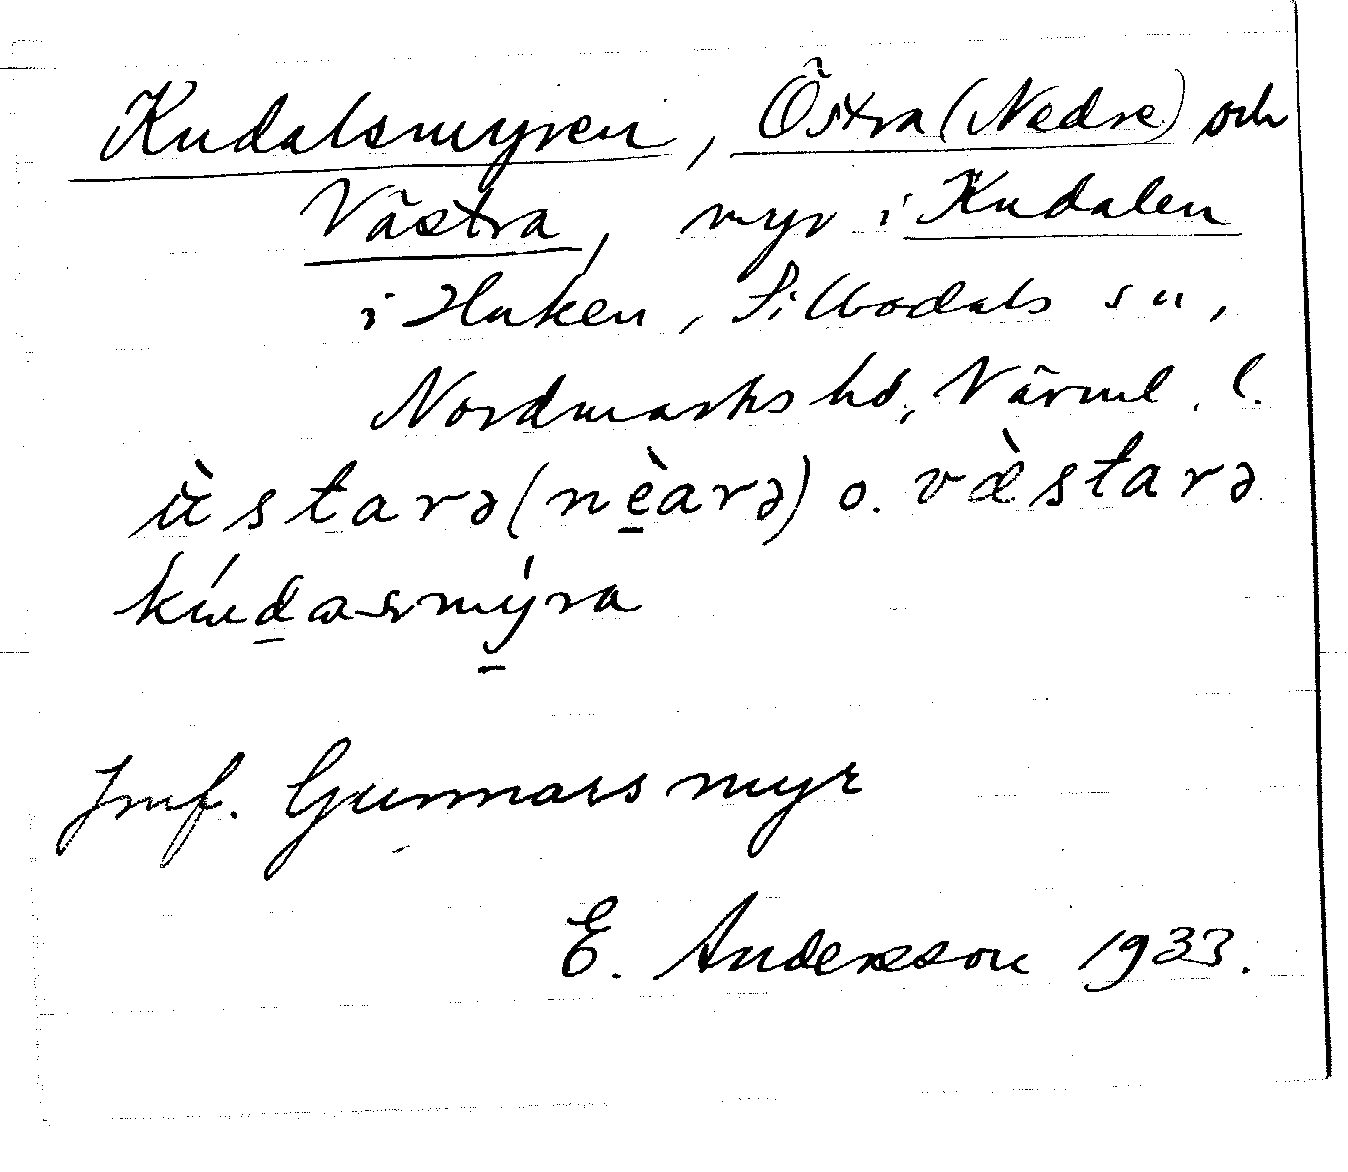 Kudalsmyren, Östra (Nedre) och
Västra, myr i Kudalen
i Huken, Silbodals sn,
Nordmarks hd, Värml. l.
ùstarə (nèarə) o. væ̀starə
kúdasmýra
Jmf. Gunnarsmyr
E. Andersson 1933.